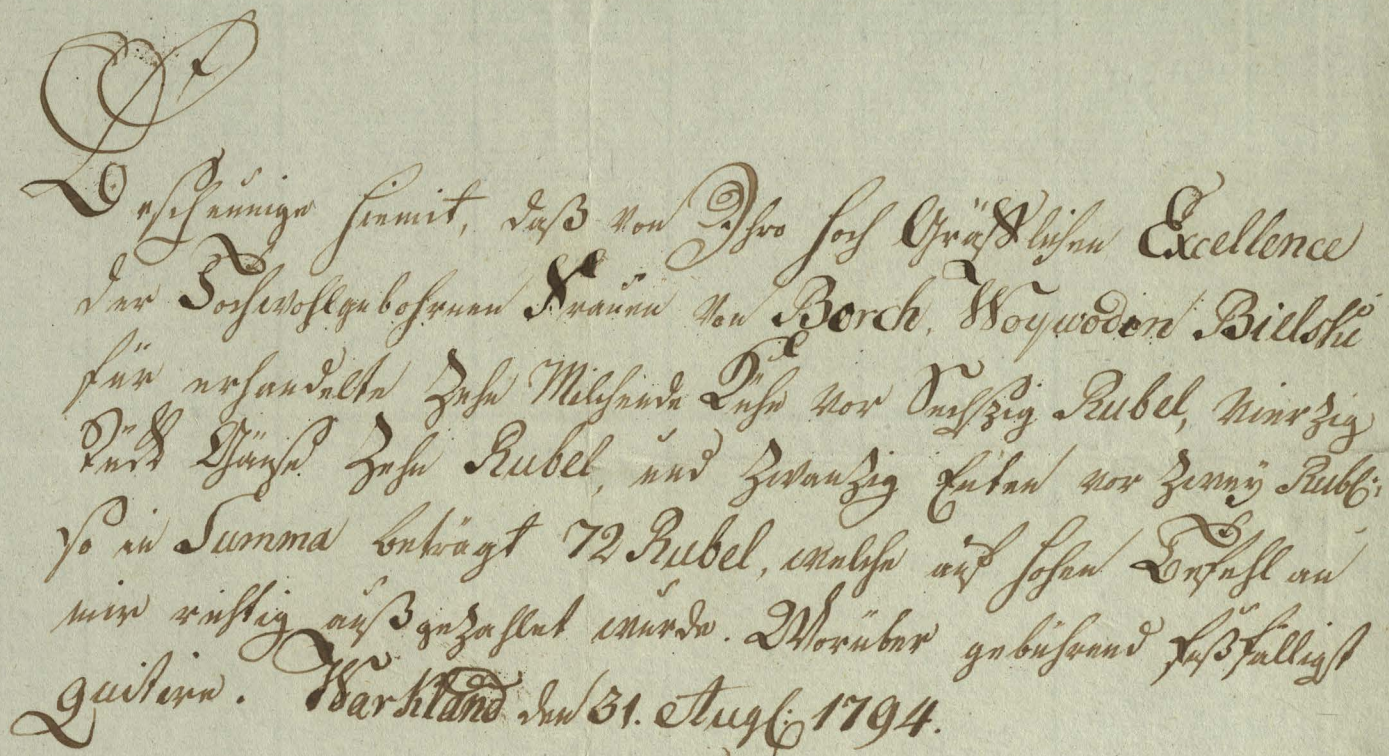 Bescheinige hiemit, daß von Ihro hoch Gräfflichen Excellence
der Hochwohlgebohrnen Frauen von Borch, Woywodin Bielski
für erhandelte Zehn Milchende Kühe vor Sechszig Rubel, vierzig
Stück Gänse Zehn Rubel, und Zwanzig Enten vor Zwey Rubl:
so in Summa beträgt 72 Rubel, welche auf hohen Befehl an
mir richtig außgezahlet wurde. Worüber gebührend fußfälligst
quitire. Warkland den 31. Augt: 1794.